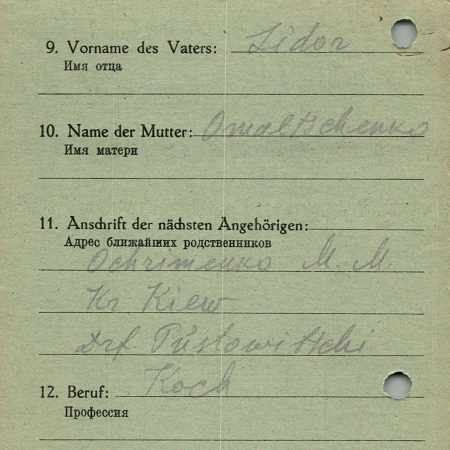 9. Vorname des Vaters: Sidor
Имя отца
10. Name der Mutter: Omeltschenko
Имя матери
11. Anschrift der nächsten Angehörigen:
Адрес ближайших родственников
Ochrimenko M. M.
Kr Kiew
Drf. Pustowitschi
12. Beruf: Koch
Профессия